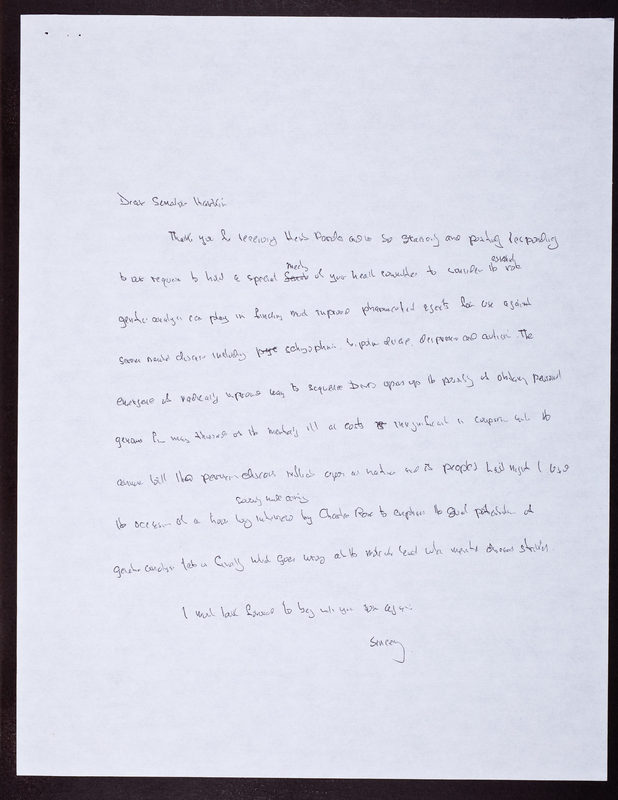 Dear Senator Harkin
Thank you for receiving Herb Pardes and so and positively responding
meeting essential
to our request to hold a special of your health committee to consider the role
genetic analysis can play in finding much improved pharmaceutical agents for use against
severe mental disease including schizophrenia, bipolar disease, depression and autism. The
emergence of radically improved ways to sequence DNA opens up the possibility of obtaining personal
genomes from many thousands of the mentally ill at costs insignificant in comparison with the
annual bill these diseases inflict upon our nation and its people. Last night I used
the occasion of an hour long interview by Charlie Rose to emphasize the great potential of
genetic analysis finally what goes wrong at the molecular level when mental disease strikes.
I much look forward to being with you soon again.
Sincerely